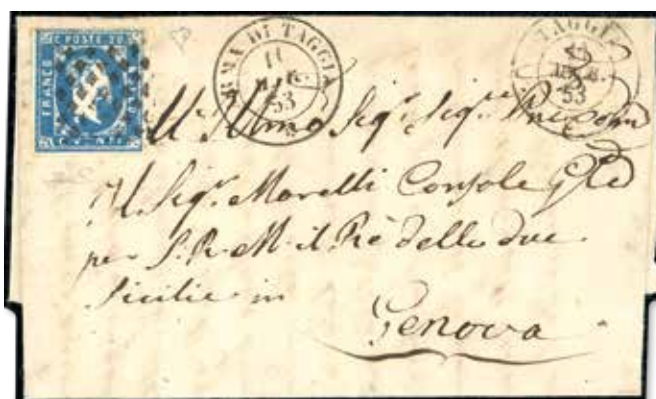 C. POSTE 20
FRANCO
ARMA DI TAGGIA
11
MAR.
53
TAGGIA
53
All' Illmo Sigr. Sigre.
Il Sigr. Morelli Console Gle
per S. R. M. il Rè delle due
Sicilie in
Genova